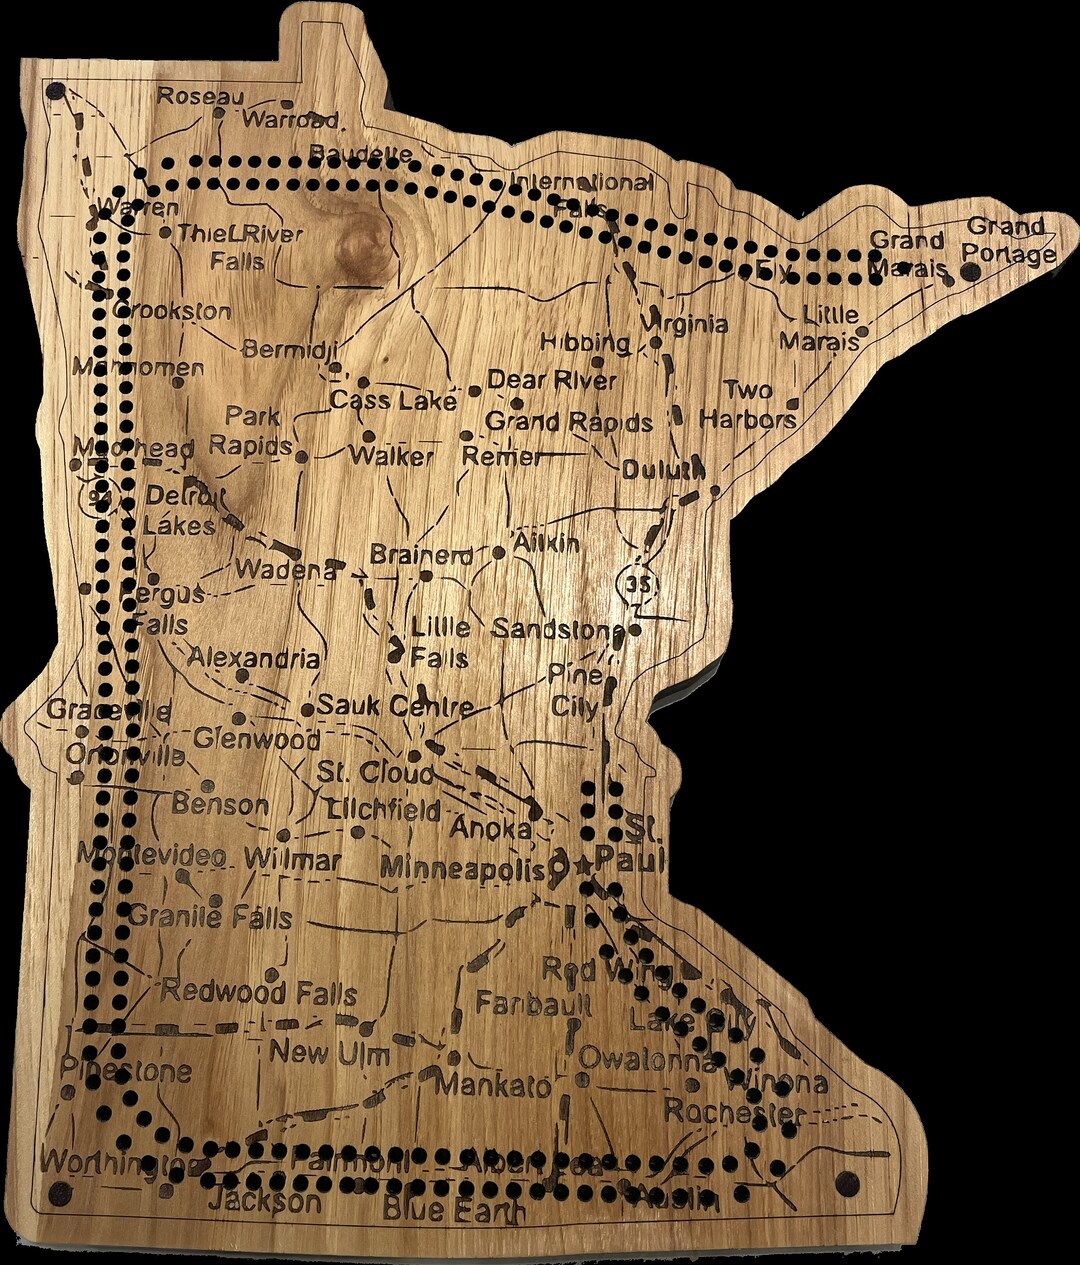 Roseau
Warroad
Baudette
International
Falls
Warren
Thief River
Falls
Grand
Portage
Grand
Marais
Ely
Crookston
Little
Marais
Virginia
Hibbing
Bermidji
Mahnomen
Dear River
Cass Lake
Two
Harbors
Park
Rapids
Grand Rapids
Moorhead
Walker
Remer
Duluth
94
Detroit
Lakes
Aitkin
Brainerd
Wadena
35
Fergus
Falls
Little
Falls
Sandstone
Alexandria
Pine
City
Graceville
Sauk Centre
Glenwood
Ortonville
St. Cloud
Benson
Litchfield
Anoka
St.
Paul
Montevideo
Wilmar
Minneapolis
Granite Falls
Red Wing
Redwood Falls
Faribault
Lake City
New Ulm
Owatonna
Pipestone
Mankato
Winona
Rochester
Worthington
Fairmont
Albert Lea
Jackson
Blue Earth
Austin